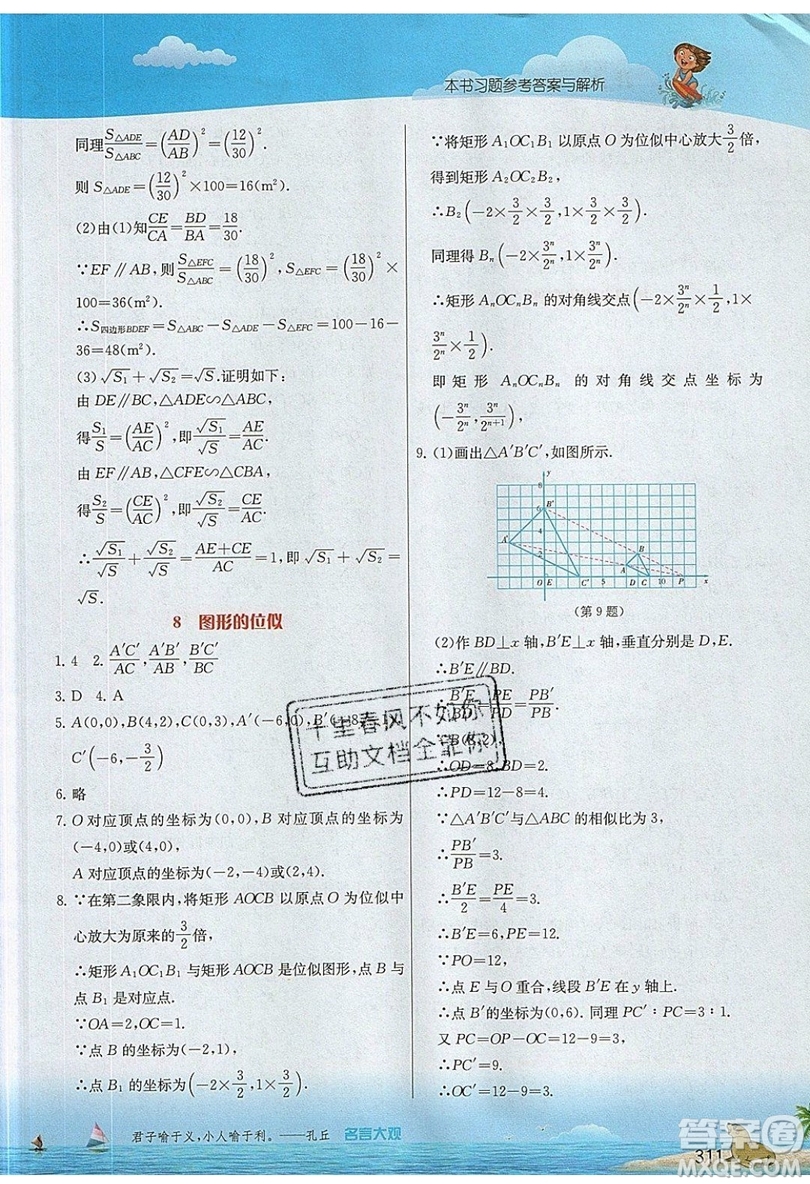 本书习题参考答案与解析
同理S△ADE/S△ABC=(AD/AB)²=(12/30)².
则 S△ADE=(12/30)²×100=16(m²).
(2)由(1)知CE/CA=BD/BA=18/30.
∵EF∥AB,则S△EFC/S△ABC=(18/30)²,S△EFC=(18/30)²×
100=36(m²).
∴S四边形BDEF=S△ABC-S△ADE-S△EFC=100-16-
36=48(m²).
(3)√S₁+√S₂=√S.证明如下:
由 DE∥BC,△ADE∽△ABC,
得S₁/S=(AE/AC)²,即√S₁/√S=AE/AC.
由 EF∥AB,△CFE∽△CBA,
得S₂/S=(CE/AC)²,即√S₂/√S=CE/AC.
∴√S₁/√S+√S₂/√S=(AE+CE)/AC=1,即√S₁+√S₂=
√S.
8 图形的位似
1. 4 2. A′C′/AC,A′B′/AB,B′C′/BC
3. D 4. A
5. A(0,0),B(4,2),C(0,3),A′(-6,0),B′(-8,-1),
C′(-6,-3/2)
6. 略
7. O 对应顶点的坐标为(0,0),B 对应顶点的坐标为
(-4,0)或(4,0),
A 对应顶点的坐标为(-2,-4)或(2,4).
8. ∵在第二象限内,将矩形 AOCB 以原点 O 为位似中
心放大为原来的3/2倍,
∴矩形 A₁OC₁B₁ 与矩形 AOCB 是位似图形,点 B 与
点 B₁ 是对应点.
∵OA=2,OC=1.
∵点 B 的坐标为(-2,1),
∴点 B₁ 的坐标为(-2×3/2,1×3/2).
∵将矩形 A₁OC₁B₁ 以原点 O 为位似中心放大3/2倍,
得到矩形 A₂OC₂B₂,
∴B₂(-2×3/2×3/2,1×3/2×3/2).
同理得 Bₙ(-2×3ⁿ/2ⁿ,1×3ⁿ/2ⁿ).
∴矩形 AₙOCₙBₙ 的对角线交点(-2×3ⁿ/2ⁿ×1/2,1×
3ⁿ/2ⁿ×1/2).
即矩形 AₙOCₙBₙ 的对角线交点坐标为
(-3ⁿ/2ⁿ,3ⁿ/2ⁿ⁺¹),
9. (1)画出△A′B′C′,如图所示.
y
8
6 B′
4
A′
2 A B
O E C′ 5 D C 10 P x
(第 9 题)
(2)作 BD⊥x 轴,B′E⊥x 轴,垂直分别是 D,E.
∴B′E∥BD.
∴B′E/BD=PE/PD=PB′/PB.
∵B(8,2).
∴OD=8.
∴PD=12-8=4.
∵△A′B′C′与△ABC 的相似比为 3,
∴PB′/PB=3.
∴B′E/2=PE/4=3.
∴B′E=6,PE=12.
∵PO=12,
∴点 E 与 O 重合,线段 B′E 在 y 轴上.
∴点 B′的坐标为(0,6). 同理 PC′∶PC=3.
又 PC=OP-OC=12-9=3.
∴PC′=9.
∴OC′=12-9=3.
千里春风不如你
互助文档全靠你
君子喻于义,小人喻于利。——孔丘 名言大观
311
答案圈
MXQE.COM